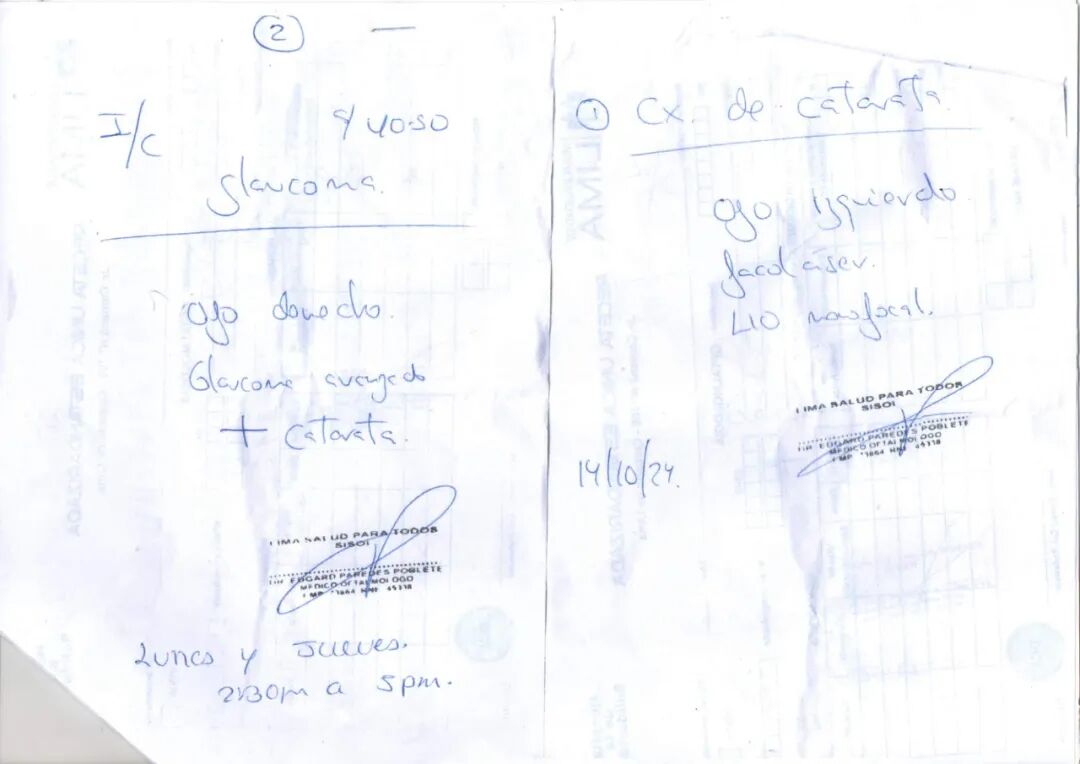 ②
I/C
glaucoma.
Ojo derecho.
Glaucoma avanzado
+ Catarata.
LIMA SALUD PARA TODOS
SISOL
EDGARD PAREDES POBLETE
MEDICO OFTALMOLOGO
Lunes y Jueves.
2:30pm a 5pm.
① Cx. de catarata.
Ojo izquierdo
facoláser.
LIO monofocal.
LIMA SALUD PARA TODOS
SISOL
EDGARD PAREDES POBLETE
MEDICO OFTALMOLOGO
14/10/24.